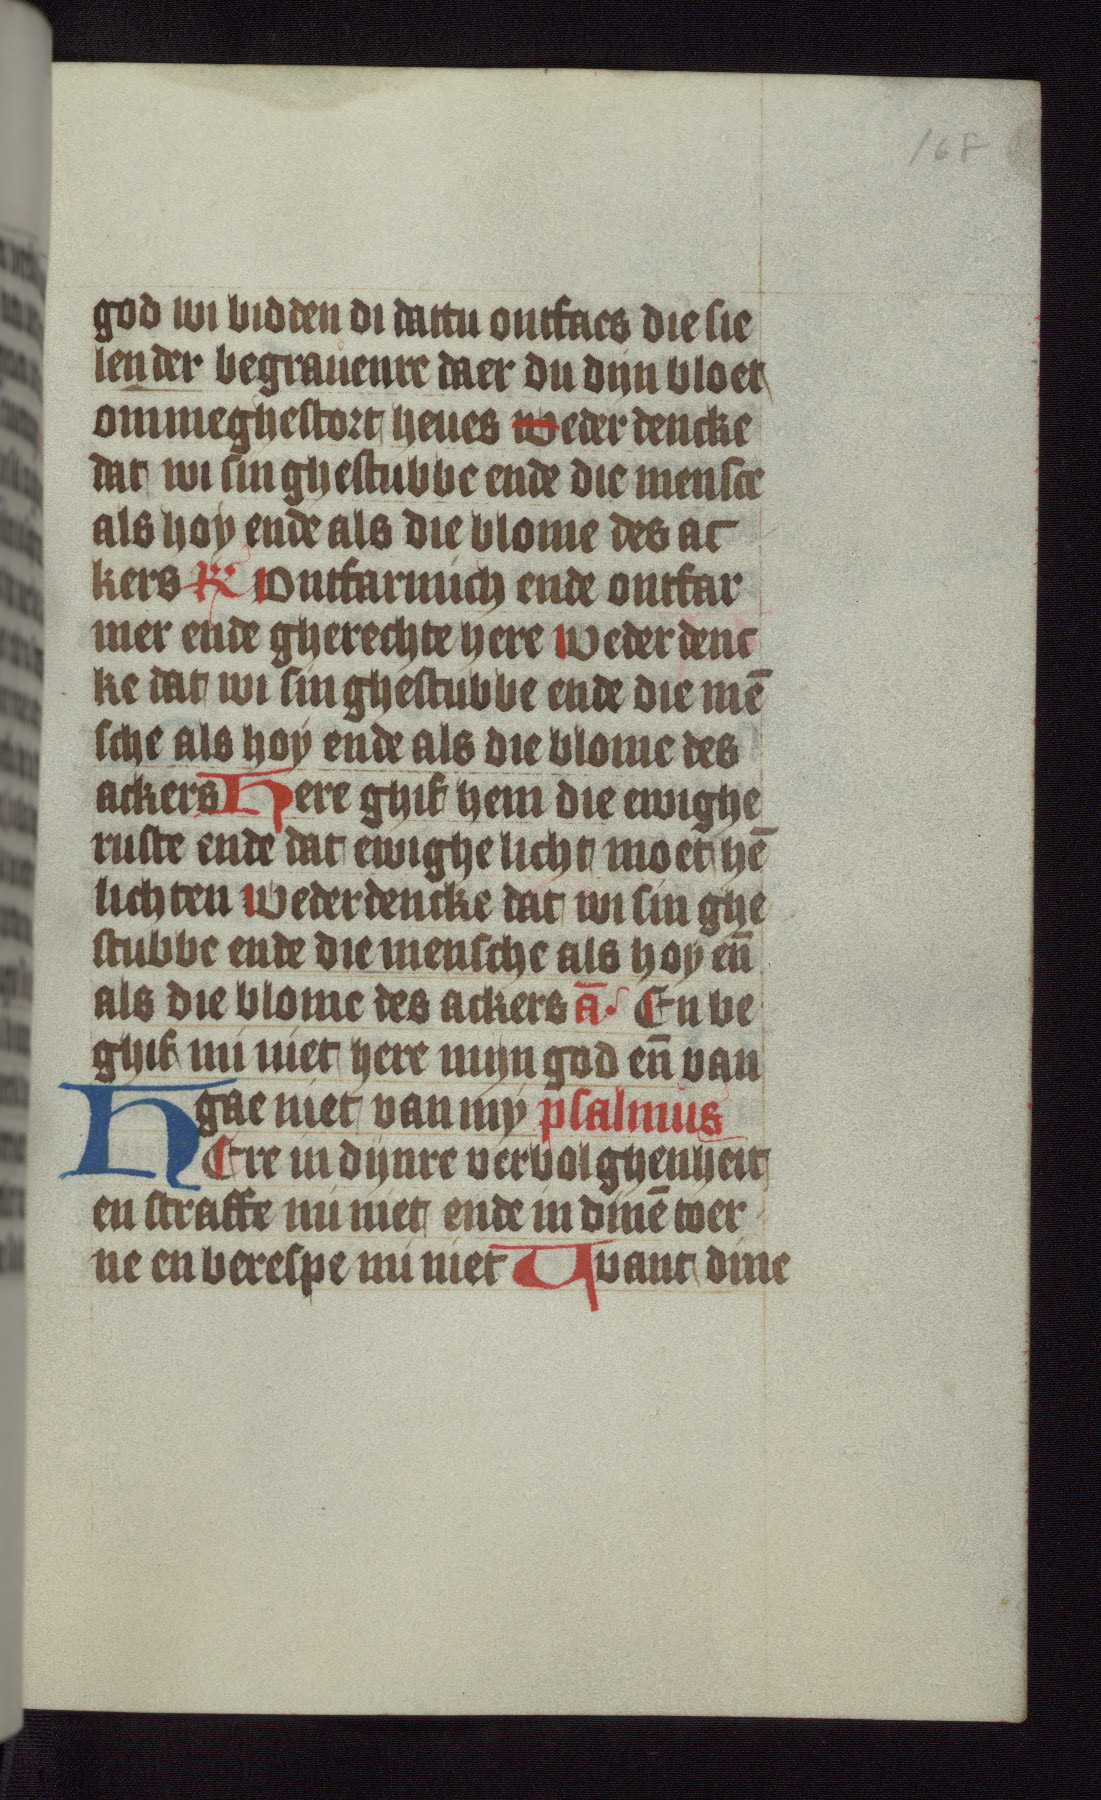 168
god wi bidden di dattu ontfacs die sie
len der begrauenre daer du dijn bloet
ommeghestort heues wederdencke
dat wi sin ghestubbe ende die mensce
als hoy ende als die blome des ac
kers R Ontfarmich ende ontfar
mer ende gherechte here wederdenc
ke dat wi sin ghestubbe ende die mē
sche als hoy ende als die blome des
ackers Here ghif hem die ewighe
ruste ende dat ewighe licht moet hē
lichten wederdencke dat wi sin ghe
stubbe ende die mensche als hoy eñ
als die blome des ackers ā. En be
ghif mi niet here mijn god eñ van
gae niet van mÿ psalmus
HEre in dijnre verbolghenheit
en straffe mi niet ende in dinē toer
ne en berespe mi niet Want dine